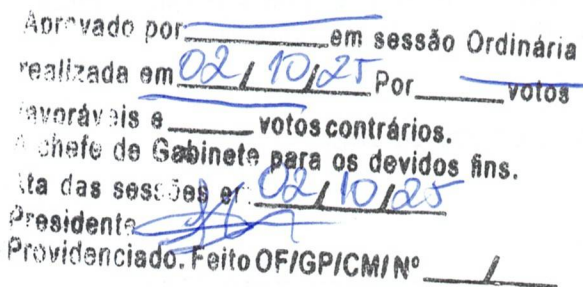 Aprovado por__________em sessão Ordinária
realizada em 02/10/25 Por______votos
favoráveis e_____ votos contrários.
A chefe de Gabinete para os devidos fins.
Ata das sessões em 02/10/25
Presidente
Providenciado. Feito OF/GP/CM/ Nº ____/